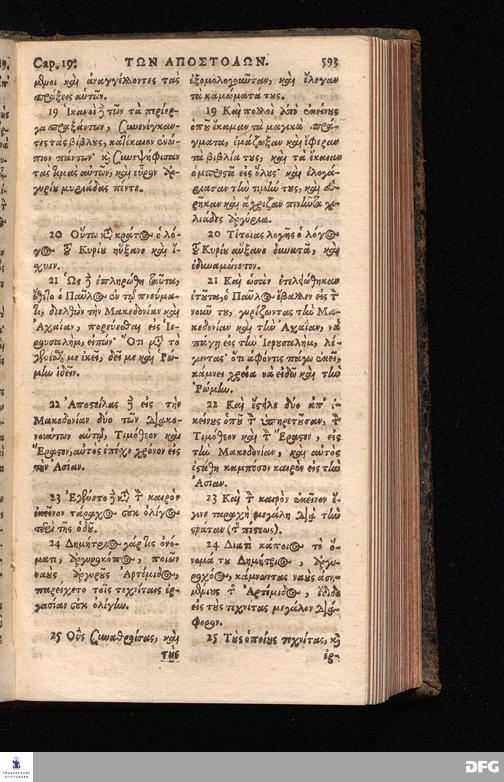 Cap. 19. ΤΩΝ ΑΠΟΣΤΟΛΩΝ. 593
μϑροι καὶ ἀναγγέλλοντες τὰς
πράξεις αὑτῶν.
19 Ἱκανοὶ ἢ τῶν τὰ περίερ-
γα πραξάντων, συνενέγκαν-
τες τὰς βίβλυς, κατέκαιον ἐνώ-
πιον πάντων· καὶ συνεψήφισαν
τὰς τιμὰς αὐτῶν, καὶ εὗρον ἀρ-
γυρίυ μυριάδας πέντε.
20 Οὕτω κατὰ κράτος ὁ λό-
γος τοῦ Κυρίυ ηὔξανε καὶ ἴ-
χυεν.
21 Ὡς δὲ ἐπληρώθη ταῦτα,
ἔθετο ὁ Παῦλος ἐν τῷ πνεύμα-
τι, διελθὼν τὴν Μακεδονίαν καὶ
Ἀχαίαν, πορεύεσθαι εἰς Ἱε-
ρυσαλήμ, εἰπών· Ὅτι μετὰ τὸ
γενέσθαι με ἐκεῖ, δεῖ με καὶ Ῥώ-
μην ἰδεῖν.
22 Ἀποστείλας δὲ εἰς τὴν
Μακεδονίαν δύο τῶν διακο-
νούντων αὐτῷ, Τιμόθεον καὶ
Ἔραστον, αὐτὸς ἐπέχε χρόνον εἰς
τὴν Ἀσίαν.
23 Ἐγένετο δὲ κατὰ τὸν καιρὸν
ἐκεῖνον τάραχος οὐκ ὀλίγος
περὶ τῆς ὁδῦ.
24 Δημήτριος γάρ τις ὀνό-
ματι, ἀργυροκόπος, ποιῶν
ναυς ἀργυρῦς Ἀρτέμιδος,
παρείχετο τοῖς τεχνίταις ἐρ-
γασίαν οὐκ ὀλίγην.
25 Οὓς συναθροίσας, καὶ
τὺς
ἐξομολογοῦνταν, καὶ ἔλεγαν
τὰ καμώματα τυς.
19 Καὶ πολλοὶ ἀπὸ ἐκείνυς
ὁπῦ ἔκαμαν τὰ μαγικὰ πρά-
γματα, ἐμάζωξαν καὶ ἔφεραν
τὰ βιβλία τυς, καὶ τὰ ἔκαυσαν
ὀμπροστὰ εἰς ὅλυς· καὶ ἐλογά-
ριασαν τὴν τιμήν τυς, καὶ εὑ-
ρῆκαν καὶ ἄχριζαν πενῆντα χι-
λιάδες ἀργύρια.
20 Τέτοιας λογῆς ὁ λόγος
τοῦ Κυρίυ αὔξανε δυνατά, καὶ
ἐδυναμώνετον.
21 Καὶ ὡσὰν ἐτελειώθηκαν
ἐτῦτα, ὁ Παῦλος ἔβαλεν εἰς τὸν
νοῦν τυ, γυρίζωντας τὴν Μα-
κεδονίαν καὶ τὴν Ἀχαίαν, νὰ
πάγῃ εἰς τὴν Ἱερυσαλήμ, λέ-
γωντας· ὅτι ἀφόντις πάγω ἐκεῖ,
κάμνει χρεία νὰ εἰδῶ καὶ τὴν
Ῥώμην.
22 Καὶ ἔστειλε δύο ἀπ' ἐ-
κείνυς ὁπῦ τὸν ὑπηρετῦσαν, τὸν
Τιμόθεον καὶ τὸν Ἔραστον, εἰς
τὴν Μακεδονίαν, καὶ αὐτὸς
ἐστάθη κάμποσον καιρὸν εἰς τὴν
Ἀσίαν.
23 Καὶ τὸν καιρὸν ἐκεῖνον ἔ-
γινε ταραχὴ μεγάλη διὰ τὴν
στράταν (τῆς πίστεως).
24 Διατὶ κάποιος τὸ ὄ-
νομά τυ Δημήτριος, ἀργυ-
ροχός, κάμνωντας ναὺς ἀση-
μένιυς τῆς Ἀρτέμιδος, ἔδιδε
εἰς τὺς τεχνίτας μεγάλον διά-
φορον.
25 Τὺς ὁποίυς τεχνίτας, καὶ
ἐρ-
FRANCKESCHE
STIFTUNGEN
DFG